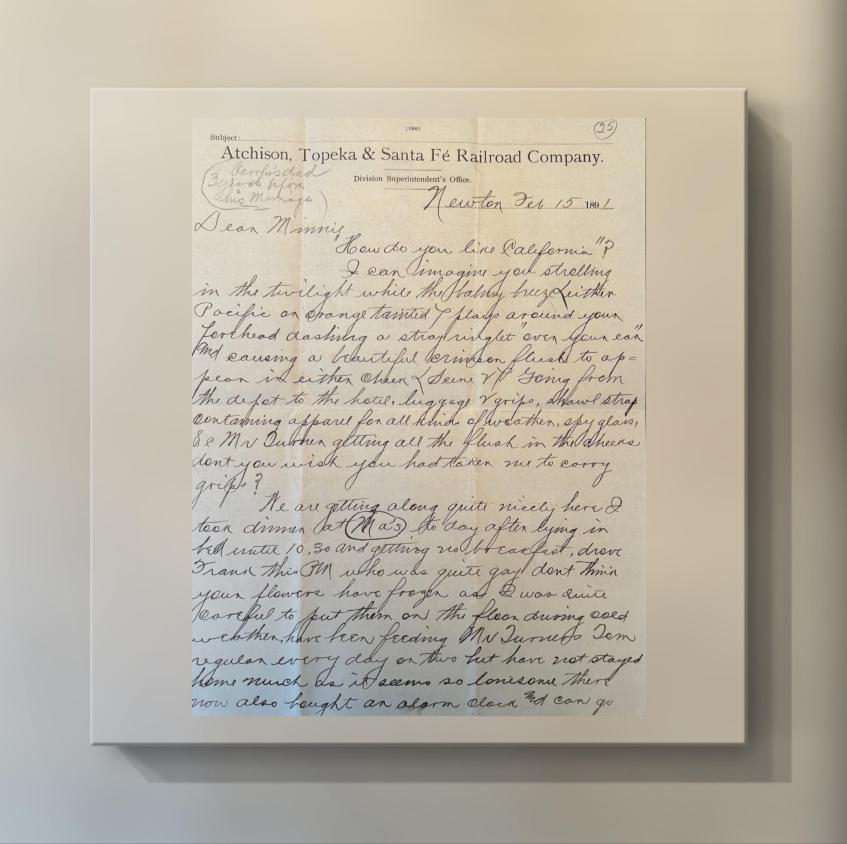 (1908)
25
Subject:
Atchison, Topeka & Santa Fé Railroad Company.
Division Superintendent's Office.
dad
3 years before
this Marriage
Newton Feb 15 1891
Dear Minnie
"How do you like California"?
I can imagine you strolling
in the twilight while the balmy breeze (either
Pacific or orange tainted) plays around your
forehead dashing a stray ringlet "over your ear"
and causing a beautiful crimson flush to ap=
pear in either cheek (Scene Going from
the depot to the hotel, luggage & grips, shawl strap
containing apparel for all kind of weather, spy glass,
&c Mr Turner getting all the flush in the cheeks
dont you wish you had taken me to carry
grips?
We are getting along quite nicely here I
took dinner at Ma's to day after lying in
bed until 10,30 and getting no breakfast, drove
Frank this PM who was quite gay, dont think
your flowers have frozen as I was quite
careful to put them on the floor during cold
weather, have been feeding Mr Turner's Tom
regular every day or two but have not stayed
home much as it seems so lonesome there
now also bought an alarm clock and can go